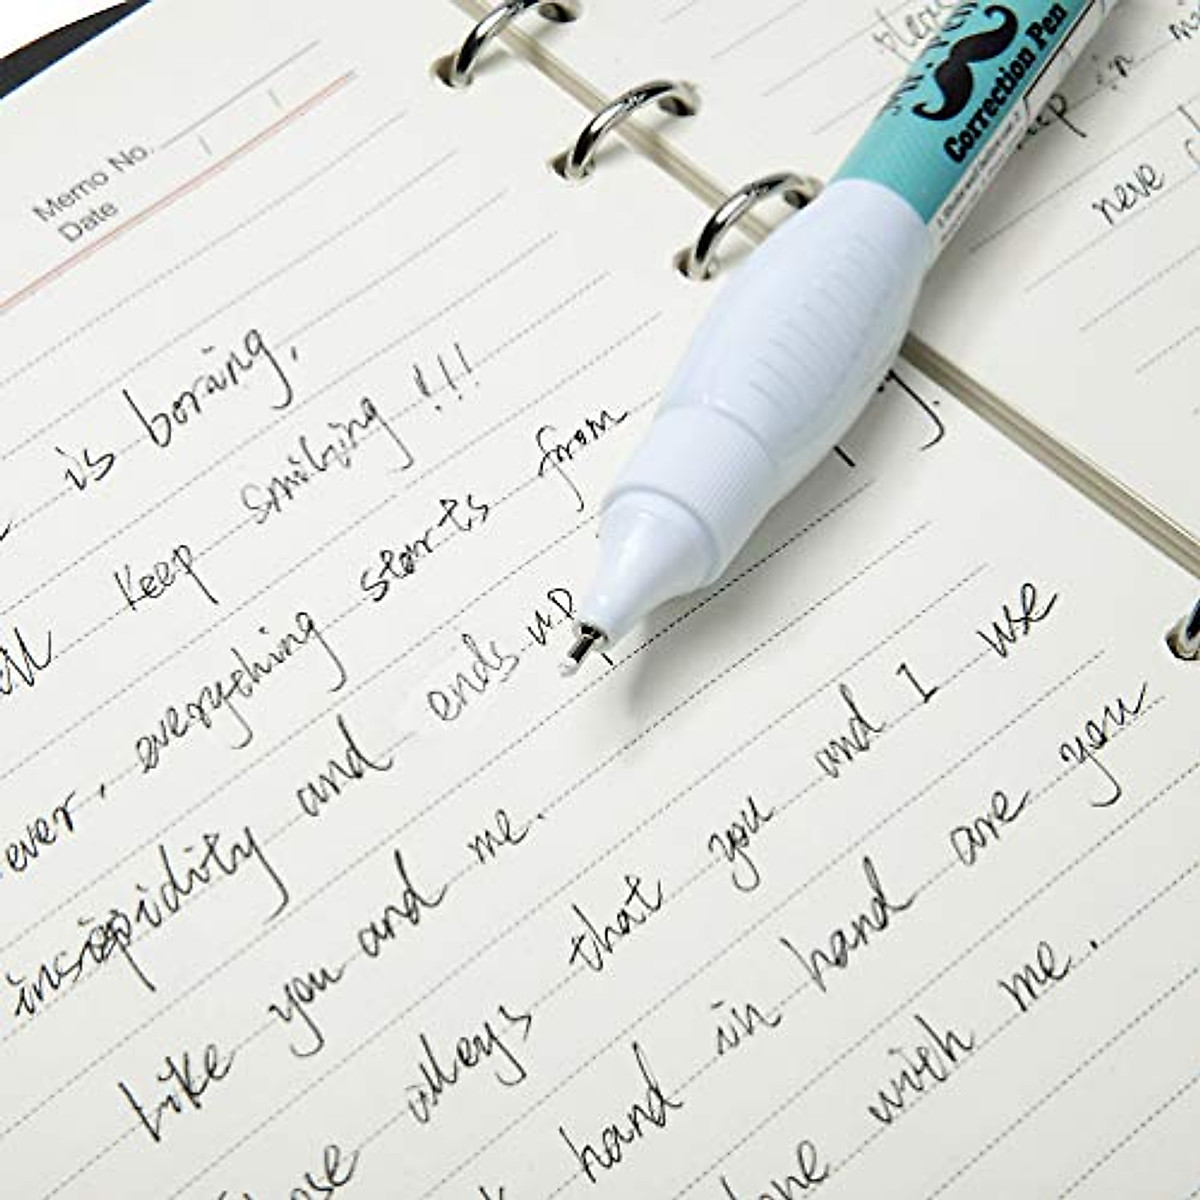 Memo No.
Date
is boring,
keep smiling !!!
ever, everything starts from
insipidity and ends up
Like you and me.
alleys that you and I use
hand in hand are you
with me.
Correction Pen